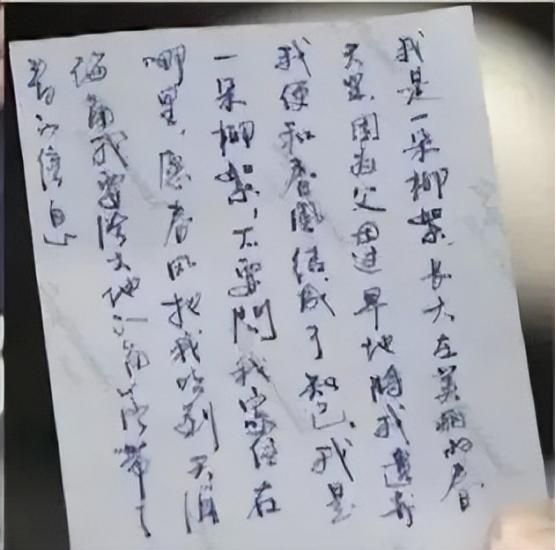 我是一朵柳絮、长大在美丽的春
天里,因为父母过早地将我遗弃
我便和春風结成了知己、我是
一朵柳絮,不要問我家住在
哪里,愿春风把我吹到天涯
海角我要给大地的角落带去
春的信息